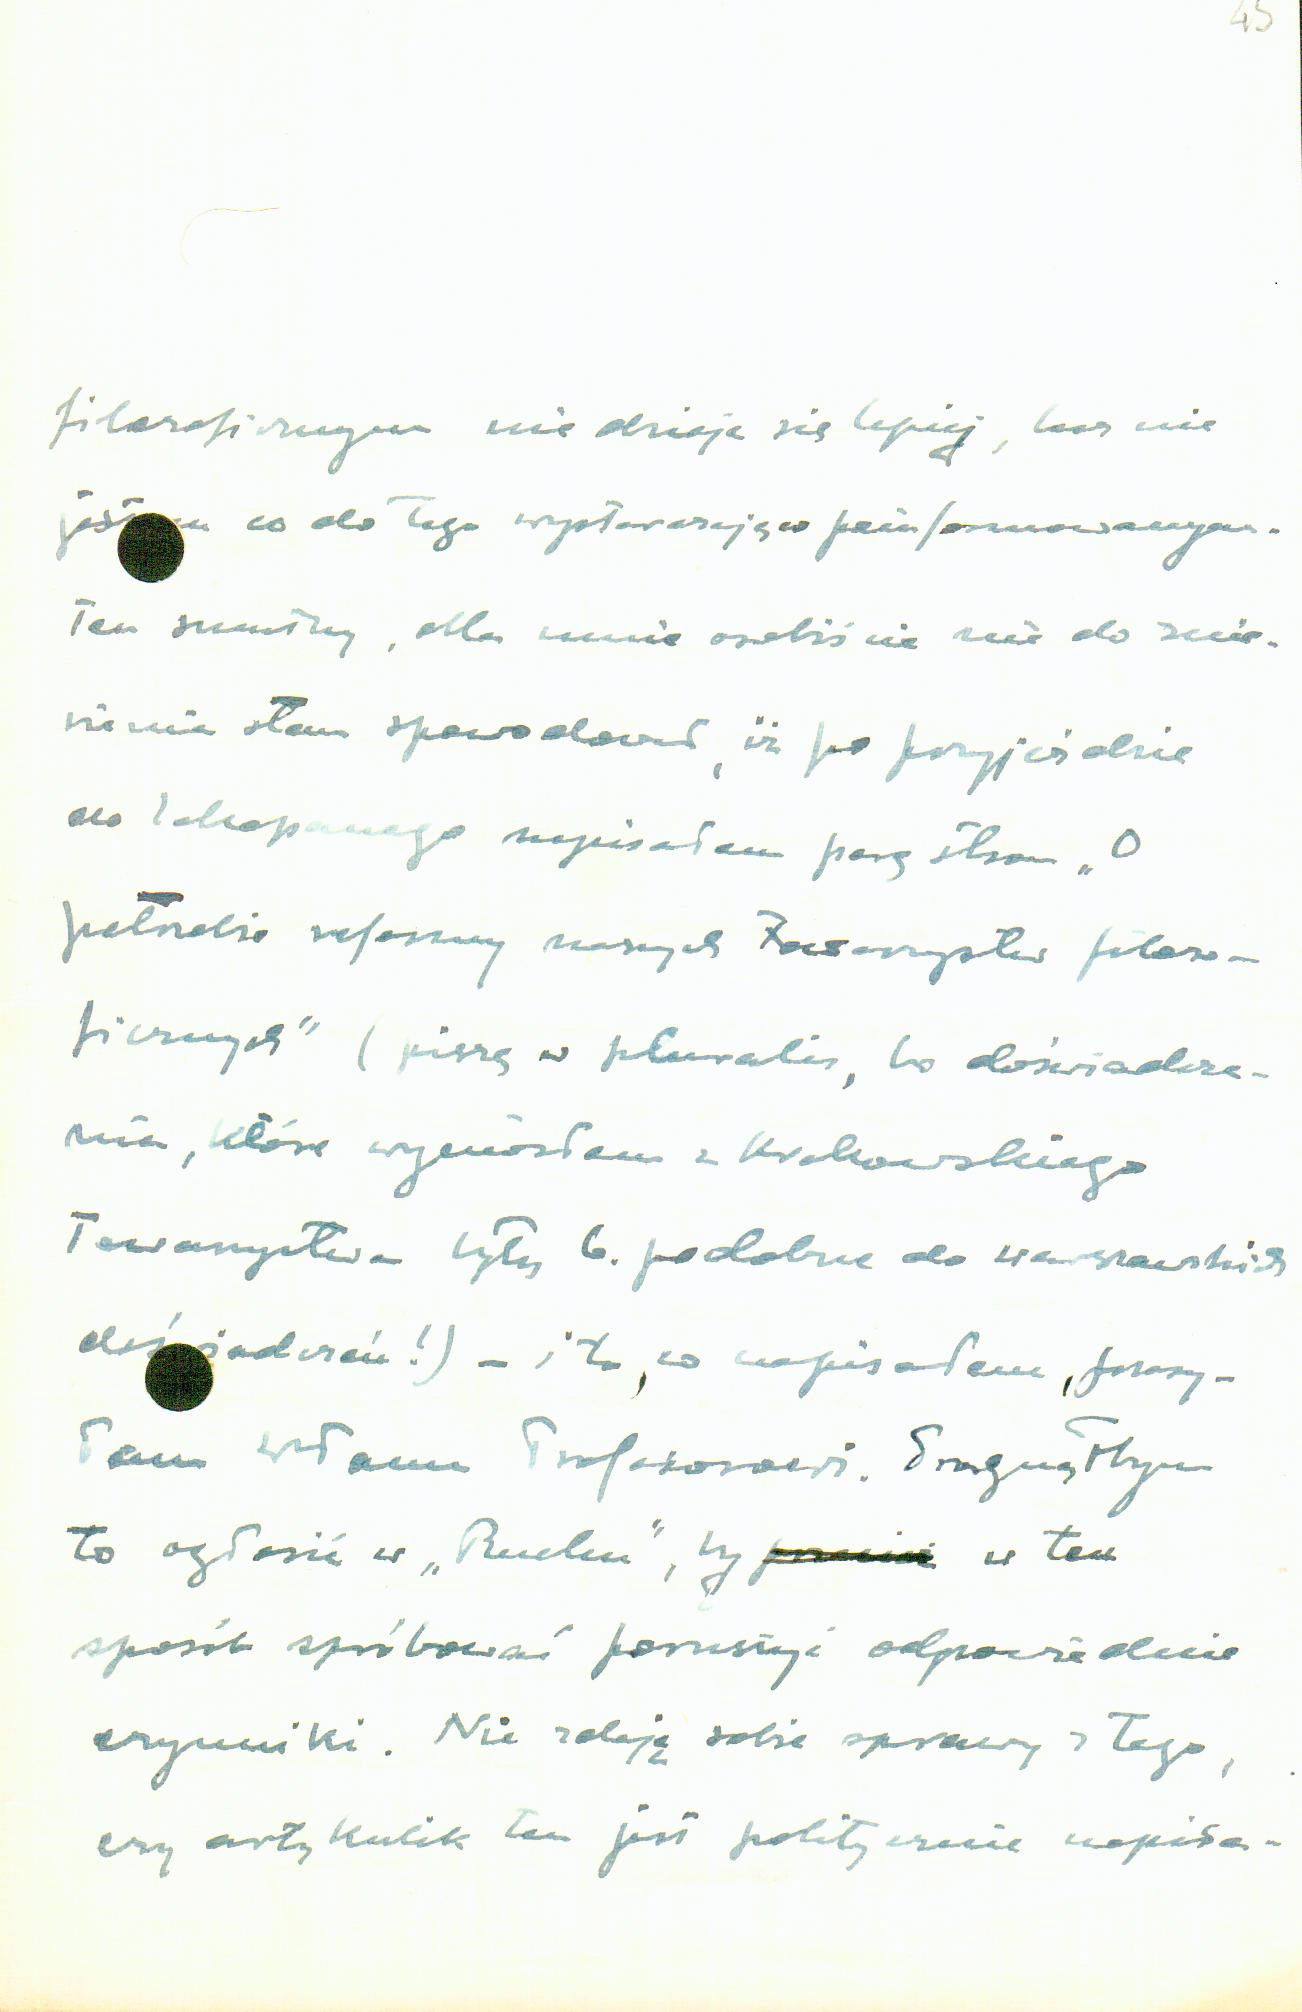 45
filozoficznym nie dzieje się lepiej, lecz nie
jestem co do tego wystarczająco poinformowanym.
Ten smutny, dla mnie osobiście nie do znie-
sienia stan spowodował, iż po przyjeździe
do Zakopanego napisałam parę stron „O
potrzebie reformy naszych Towarzystw filozo-
ficznych" (piszę w pluralis, bo doświadcze-
nia, które wyniosłam z Krakowskiego
Towarzystwa były b. podobne do warszawskich
doświadczeń!) - i to, co napisałam, przesy-
łam Panu Profesorowi. Pragnąłbym
to ogłosić w „Ruchu", by w ten
sposób spróbować poruszyć odpowiednie
czynniki. Nie zdaję sobie sprawy z tego,
czy artykulik ten jest politycznie napisa-